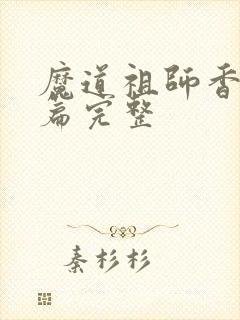 魔道祖師香
篇完整
秦杉杉